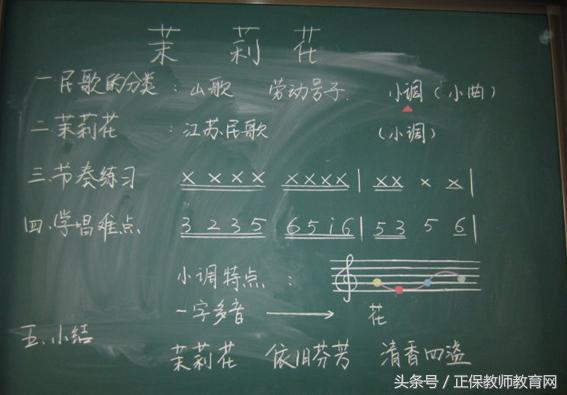 茉莉花
一.民歌的分类：山歌 劳动号子. 小调（小曲）
二.茉莉花：江苏民歌 （小调）
三.节奏练习 x x x x x x x x | x x x x |
四.学唱难点 3 2 3 5 6 5 i 6 | 5 3 5 6 |
小调特点：
一字多音 → 花
五.小结
茉莉花 依旧芬芳 清香四溢
头条号／正保教师教育网